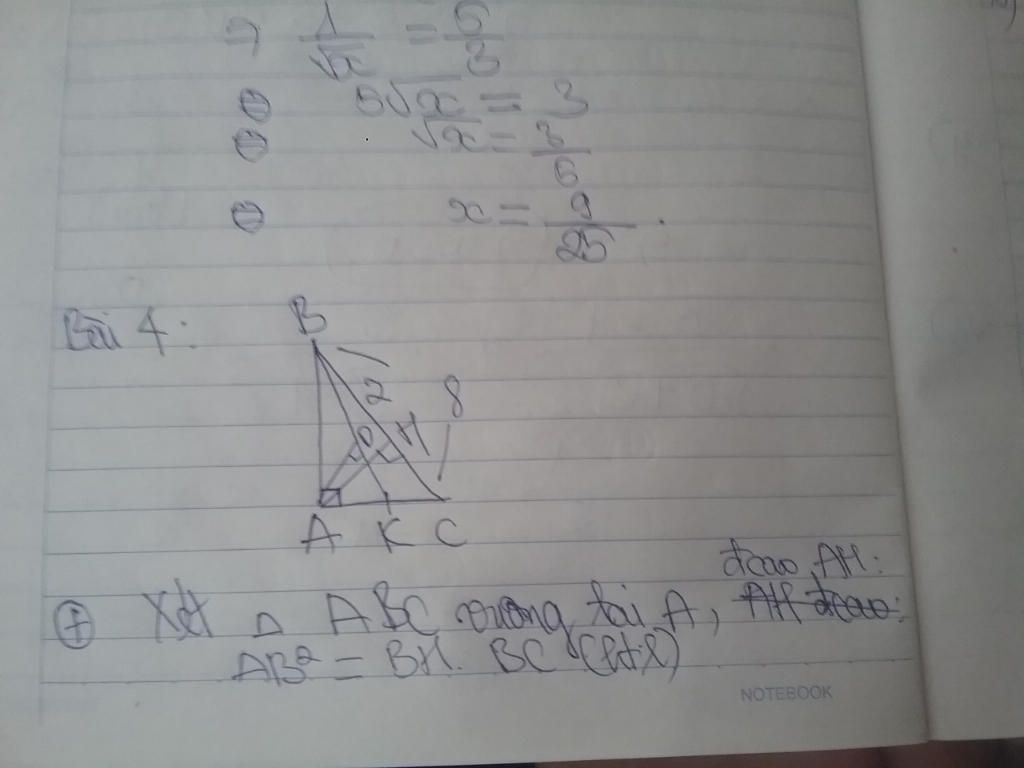 => 1/√x = 5/3
⇔ 5√x = 3
⇔ √x = 3/5
⇔ x = 9/25.
Bài 4:
B
2 8
D H
A K C
đcao AH:
⊕ Xét △ ABC vuông tại A, AH đcao:
AB² = BH. BC (htl)
NOTEBOOK